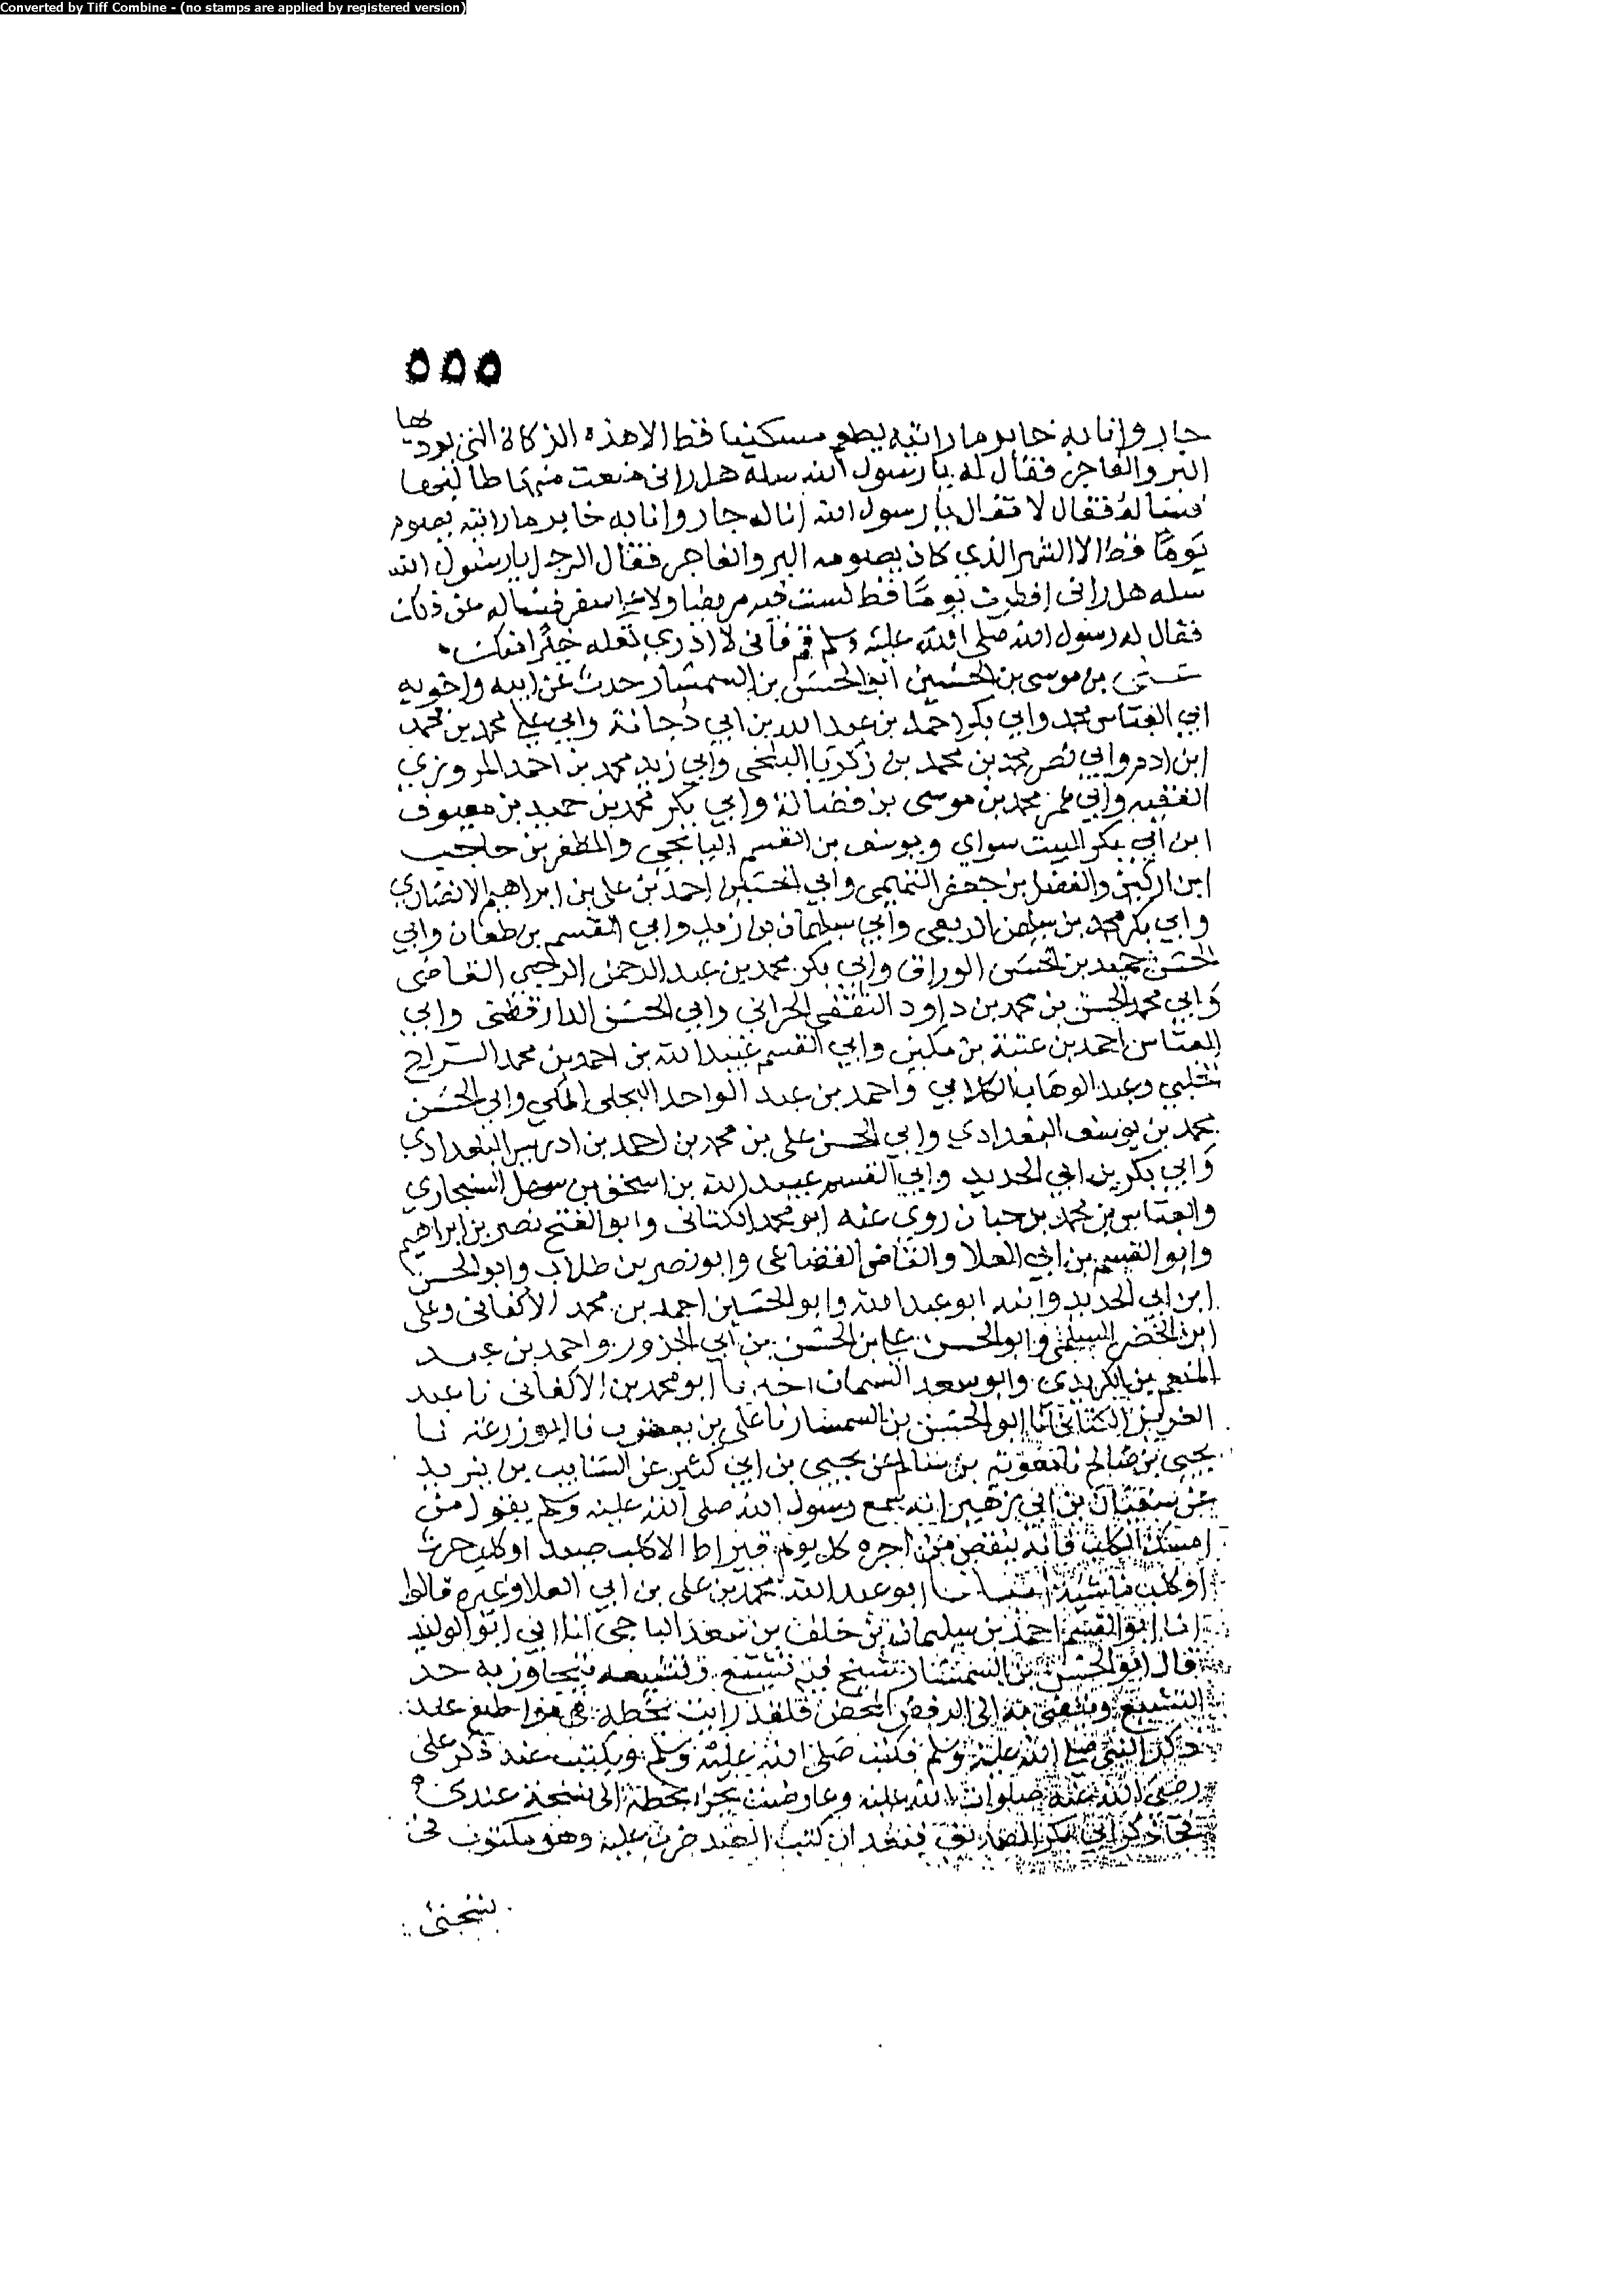 Converted by Tiff Combine - (no stamps are applied by registered version)
٥٥٥
جار وانا به خابر ما رايته يطعم مسكينا قط الا هذه الزكاة التي يوديها
البر والفاجر فقال له يا رسول الله سله هل راني منعت منها طالبها
فساله فقال لا فقال يا رسول الله انا له جار وانا به خابر ما رايته يصوم
يوما قط الا الشهر الذي كان يصومه البر والفاجر فقال الرجل يا رسول الله
سله هل راني افطرت يوما قط لست فيه مريضا ولا على سفر فساله عن ذلك
فقال له رسول الله صلى الله عليه وسلم قم فاني لا ادري لعله خير منك
علي بن موسى بن الحسين ابو الحسن بن السمسار حدث عن ابيه واخويه
ابي العباس محمد وابي بكر احمد بن عبد الله بن ابي دجانة وابي علي محمد بن محمد
ابن ادم وابي نصر محمد بن محمد بن زكريا البلخي وابي زيد محمد بن احمد المروزي
الفقيه وابي عمر محمد بن موسى بن فضالة وابي بكر محمد بن حميد بن معيوف
ابن ابي بكر البيت سواي ويوسف بن القسم الميانجي والمظفر بن حاجب
ابن اركين والفضل بن جعفر التميمي وابي الحسين احمد بن علي بن ابراهيم الانصاري
وابي بكر محمد بن سليمن الربعي وابي سليمان بن زبر وابي القسم بن طعان وابي
الحسن حميد بن الحسن الوراق وابي بكر محمد بن عبد الرحمن الرحبي القاضي
وابي محمد الحسن بن محمد بن داود الثقفي الحراني وابي الحسن الدارقطني وابي
العباس احمد بن عتبة بن مكين وابي القسم عبيد الله بن احمد بن محمد السراج
الحلبي وعبد الوهاب الكلابي واحمد بن عبد الواحد البجلي المكي وابي الحسن
محمد بن يوسف البغدادي وابي الحسن علي بن محمد بن احمد بن ادريس البغدادي
وابي بكر بن ابي الحديد وابي القسم عبيد الله بن اسحق بن سهل السنجاري
والعباس بن محمد بن حبان روى عنه ابو محمد الكتاني وابو الفتح نصر بن ابراهيم
وابو القسم بن ابي العلا والقاضي القضاعي وابو نصر بن طلاب وابو الحسن
ابن ابي الحديد وابنه ابو عبد الله وابو الحسين احمد بن محمد الاكفاني وعلي
ابن الخضر السلمي وابو الحسن علي بن الحسن بن ابي الحزور واحمد بن عبد
المنعم بن الكريدي وابو سعد السمان اخبرنا ابو محمد بن الاكفاني نا عبد
العزيز الكتاني انا ابو الحسن بن السمسار نا علي بن يعقوب نا ابو زرعة نا
يحيى بن صالح نا معوية بن سلام عن يحيى بن ابي كثير عن السايب بن يزيد
عن سفيان بن ابي زهير انه سمع رسول الله صلى الله عليه وسلم يقول من
امسك الكلب فانه ينقص من اجره كل يوم قيراط الا كلب صيد او كلب حرث
او كلب ماشية انبانا ابو عبد الله محمد بن علي بن ابي العلا وغيره قالوا
انا ابو القسم احمد بن سليمان بن خلف بن سعد الباجي انا ابي ابو الوليد
قال ابو الحسن بن السمسار شيخ فيه تشيع وتشيعه يتجاوز به حد
التشيع ويفضي به الى الرفض المحض فلقد رايت بخطه في مواضع عند
ذكر النبي صلى الله عليه وسلم فكتب صلى الله عليه وسلم ويكتب عند ذكر علي
رضي الله عنه صلوات الله عليه وعارضت بجزا بخطه الى نسخة عندي
فجا ذكر ابي بكر الصديق فبعد ان كتب الصد ضرب عليه وهو مكتوب في
نسختي